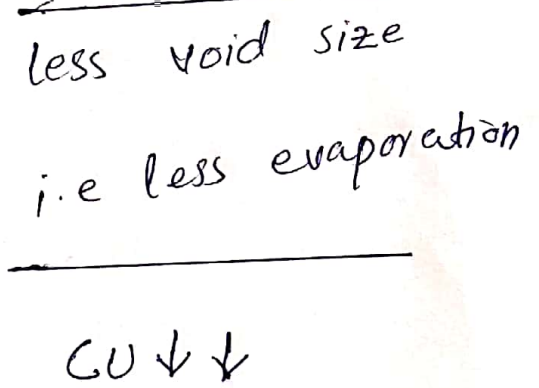 less void size
i.e less evaporation
CU ↓ ↓